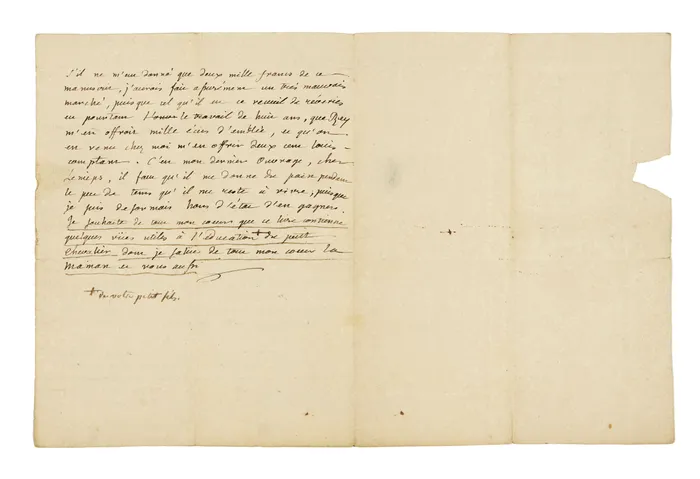 S'il ne m'eut donné que deux mille francs de ce
manuscrit, j'aurois fait assurément un très mauvais
marché, puisque tel qu'il est ce recueil de rêveries
est pourtant l'oeuvre le travail de huit ans, que Rey
m'en offroit mille écus d'emblée, et qu'on
est venu chez moi m'en offrir deux cent louis
comptant. C'est mon dernier Ouvrage, cher
Lenieps, il faut qu'il me donne du pain pendant
le peu de tems qu'il me reste à vivre, puisque
je suis desormais hors d'état d'en gagner.
Je souhaite de tout mon coeur que ce livre contienne
quelques vues utiles à l'éducation + du petit
Chevalier dont je salue de tout mon coeur la
Maman et vous aussi
+ de votre petit fils.